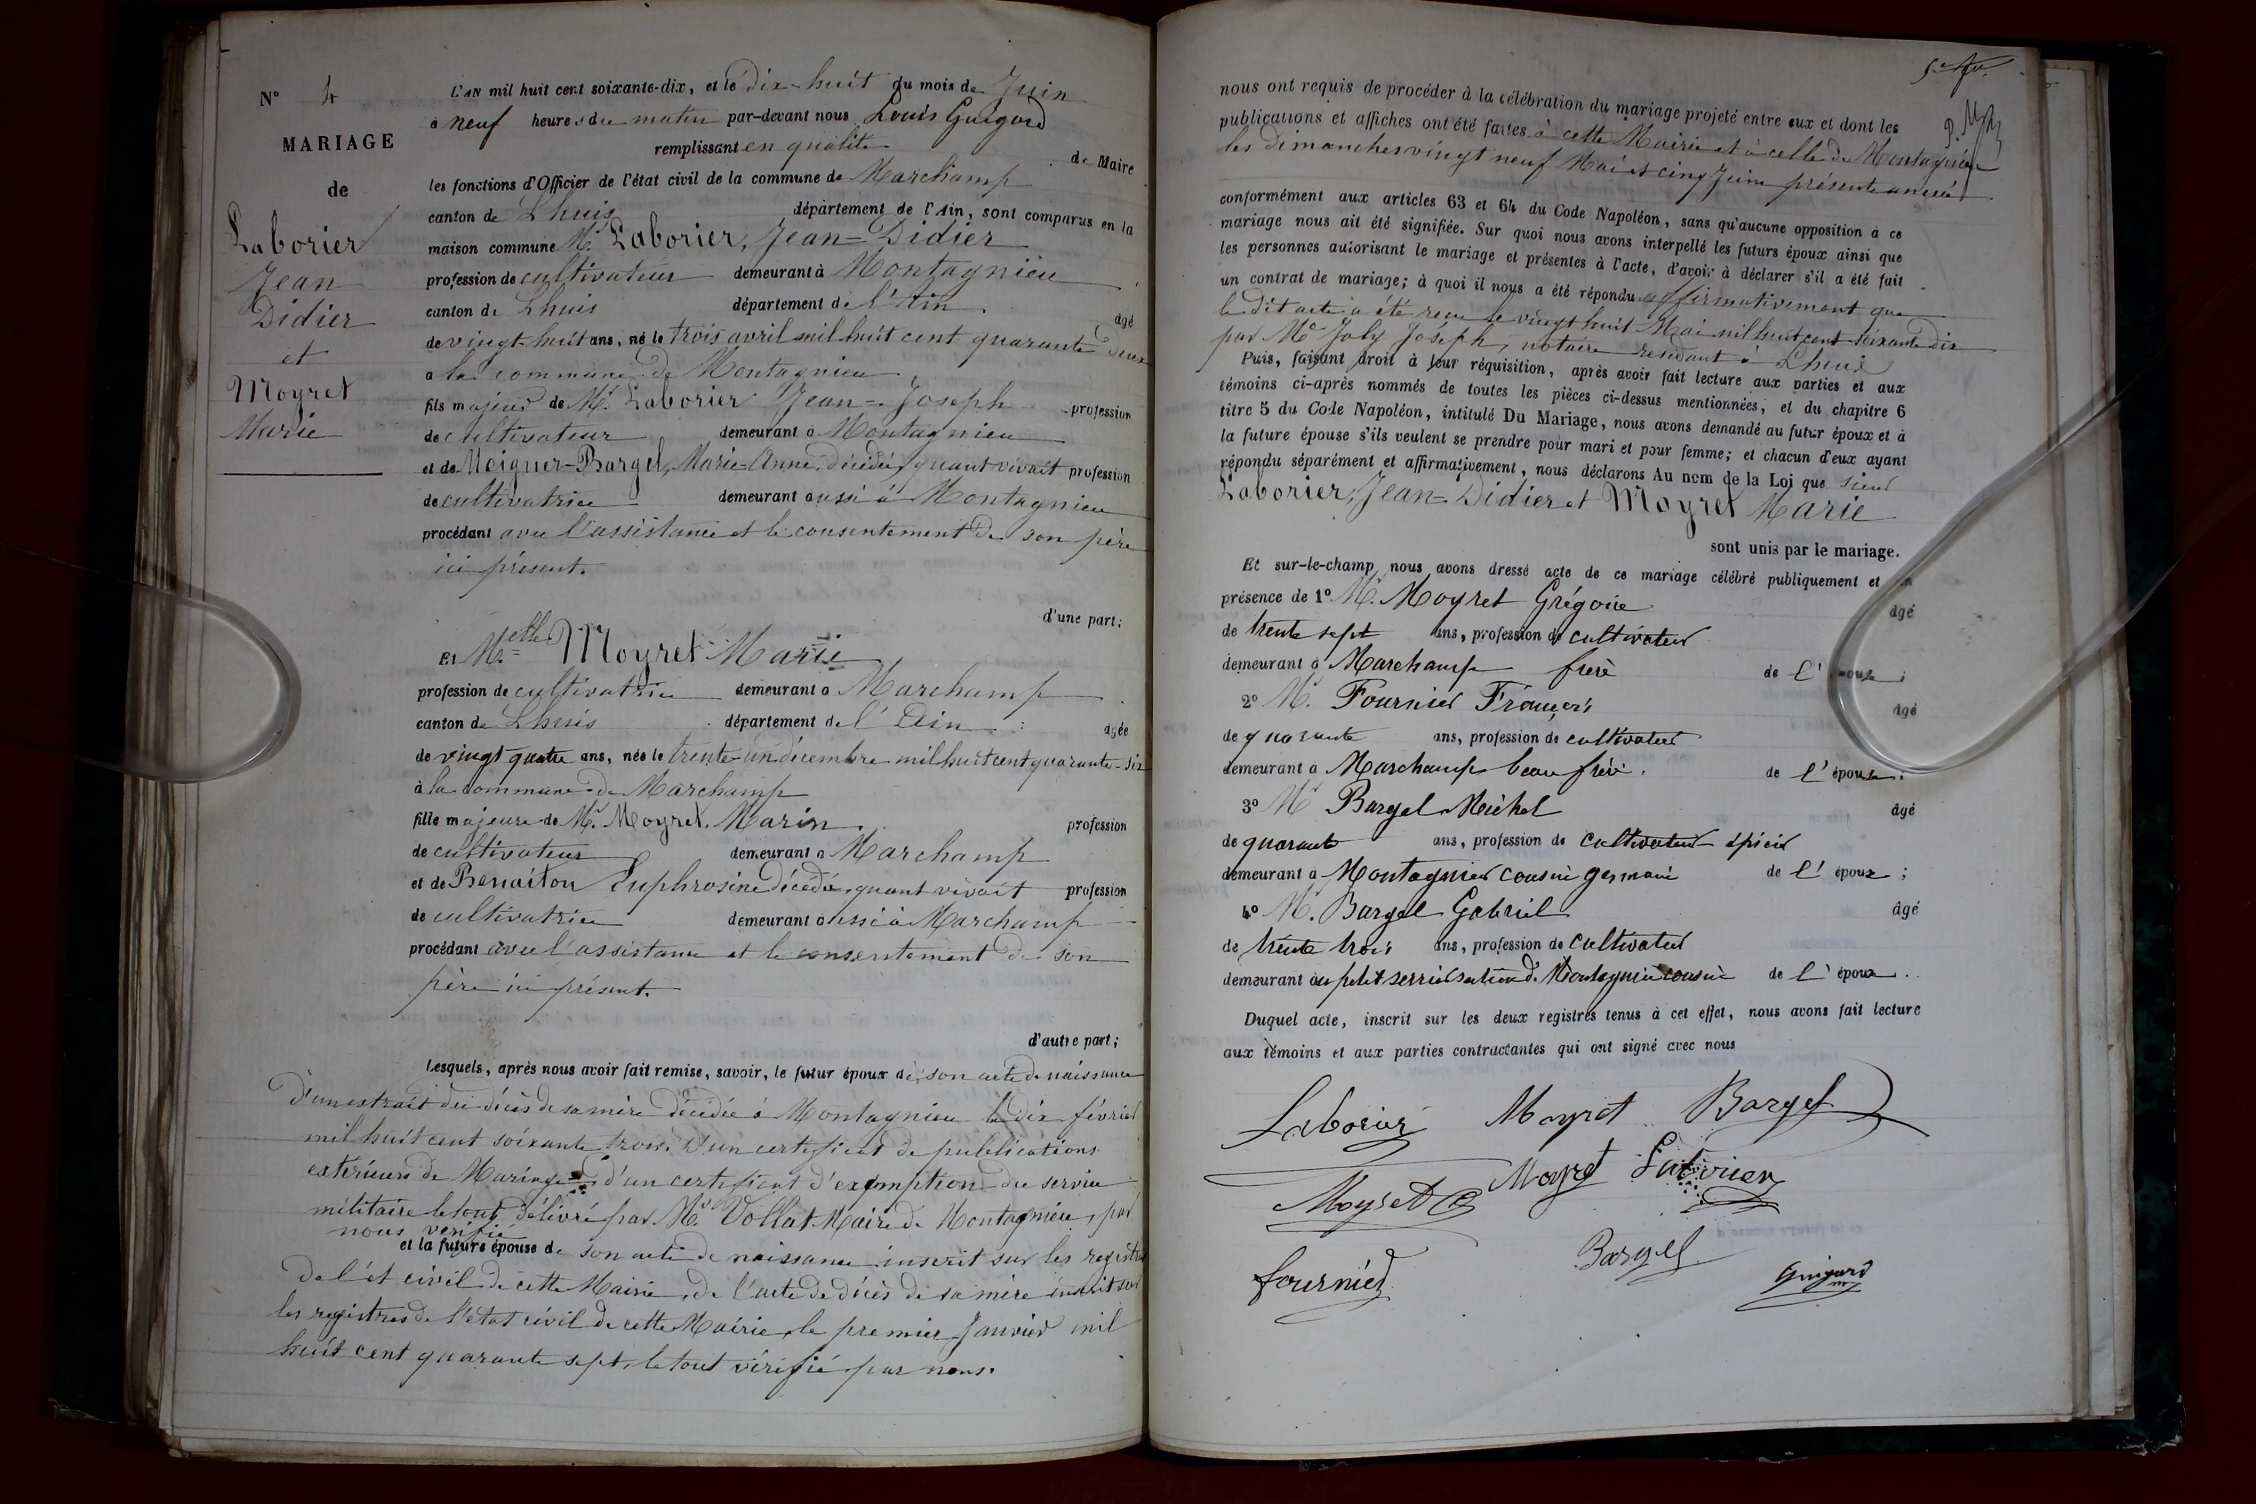 N° 4
MARIAGE
de
Laborier
Jean
Didier
et
Moyret
Marie
L'AN mil huit cent soixante-dix, et le dix-huit du mois de Juin
à neuf heures du matin par-devant nous Louis Guigard
remplissant en qualité de Maire
les fonctions d'Officier de l'état civil de la commune de Marchamp
canton de Lhuis département de l'Ain, sont comparus en la
maison commune Mr. Laborier, Jean-Didier
profession de cultivateur demeurant à Montagnieu
canton de Lhuis département de l'Ain. âgé
de vingt-huit ans, né le trois avril mil huit cent quarante deux
à la commune de Montagnieu
fils majeur de Mr. Laborier Jean-Joseph profession
de cultivateur demeurant à Montagnieu
et de Meigner-Bargel, Marie-Anne, décédée, quant vivait profession
de cultivatrice demeurant aussi à Montagnieu
procédant avec l'assistance et le consentement de son père
ici présent.
d'une part;
Et Melle Moyret Marie
profession de cultivatrice demeurant à Marchamp
canton de Lhuis département de l'Ain : âgée
de vingt quatre ans, née le trente-un décembre mil huit cent quarante-six
à la commune de Marchamp
fille majeure de Mr. Moyret, Marin profession
de cultivateur demeurant à Marchamp
et de Benaiton Euphrosine décédée, quant vivait profession
de cultivatrice demeurant aussi à Marchamp
procédant avec l'assistance et le consentement de son
père ici présent.
d'autre part;
Lesquels, après nous avoir fait remise, savoir, le futur époux de son acte de naissance
D'un extrait du décès de sa mère décédée à Montagnieu le dix février
mil huit cent soixante trois. D'un certificat de publications
exterieurs de Mariage d'un certificat d'exemption du service
militaire le tout délivré par Mr. Vollat Maire de Montagnieu, par
nous vérifié
et la future épouse de son acte de naissance inscrit sur les registres
de l'ét civil de cette Mairie, de l'acte de décès de sa mère inscrit sur
les registres de l'état civil de cette Mairie, le premier Janvier mil
huit cent quarante sept, le tout vérifié par nous.
nous ont requis de procéder à la célébration du mariage projeté entre eux et dont les
publications et affiches ont été faites à cette Mairie et à celle de Montagnieu
les dimanches vingt neuf Mai et cinq Juin présente année
conformément aux articles 63 et 64 du Code Napoléon, sans qu'aucune opposition à ce
mariage nous ait été signifiée. Sur quoi nous avons interpellé les futurs époux ainsi que
les personnes autorisant le mariage et présentes à l'acte, d'avoir à déclarer s'il a été fait
un contrat de mariage; à quoi il nous a été répondu affirmativement que
le dit acte a été reçu le vingt huit Mai mil huit cent soixante dix
par Me Joly Joseph, notaire residant à Lhuis
Puis, faisant droit à leur réquisition, après avoir fait lecture aux parties et aux
témoins ci-après nommés de toutes les pièces ci-dessus mentionnées, et du chapitre 6
titre 5 du Code Napoléon, intitulé Du Mariage, nous avons demandé au futur époux et à
la future épouse s'ils veulent se prendre pour mari et pour femme; et chacun d'eux ayant
répondu séparément et affirmativement, nous déclarons Au nom de la Loi que sieur
Laborier, Jean-Didier et Moyret Marie
sont unis par le mariage.
Et sur-le-champ nous avons dressé acte de ce mariage célébré publiquement et en
présence de 1° Mr. Moyret Grégoire âgé
de trente sept ans, profession de cultivateur
demeurant à Marchamp frère de l'épouse ;
2° M. Fournier François âgé
de quarante ans, profession de cultivateur
demeurant à Marchamp beau frère. de l'épouse ;
3° Mr Bargel Michel âgé
de quarante ans, profession de cultivateur-épicier
demeurant à Montagnieu cousin germain de l'époux ;
4° M. Bargel Gabriel âgé
de trente trois ans, profession de cultivateur
demeurant au petit serrier section de Montagnieu cousin de l'époux.
Duquel acte, inscrit sur les deux registres tenus à cet effet, nous avons fait lecture
aux témoins et aux parties contractantes qui ont signé avec nous
Laborier Moyret Bargel
Moyret Moyret Laborier
fournier Bargel Guigard